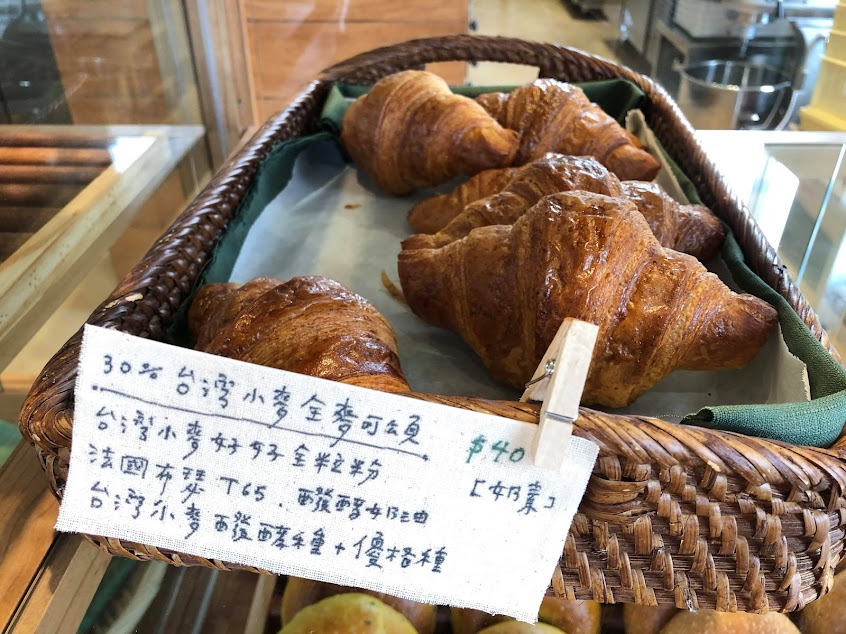 30% 台灣小麥全麥可頌
台灣小麥好好全粒粉 $40
法國布瑟T65．醱酵奶油 [奶素]
台灣小麥醱酵種+優格種